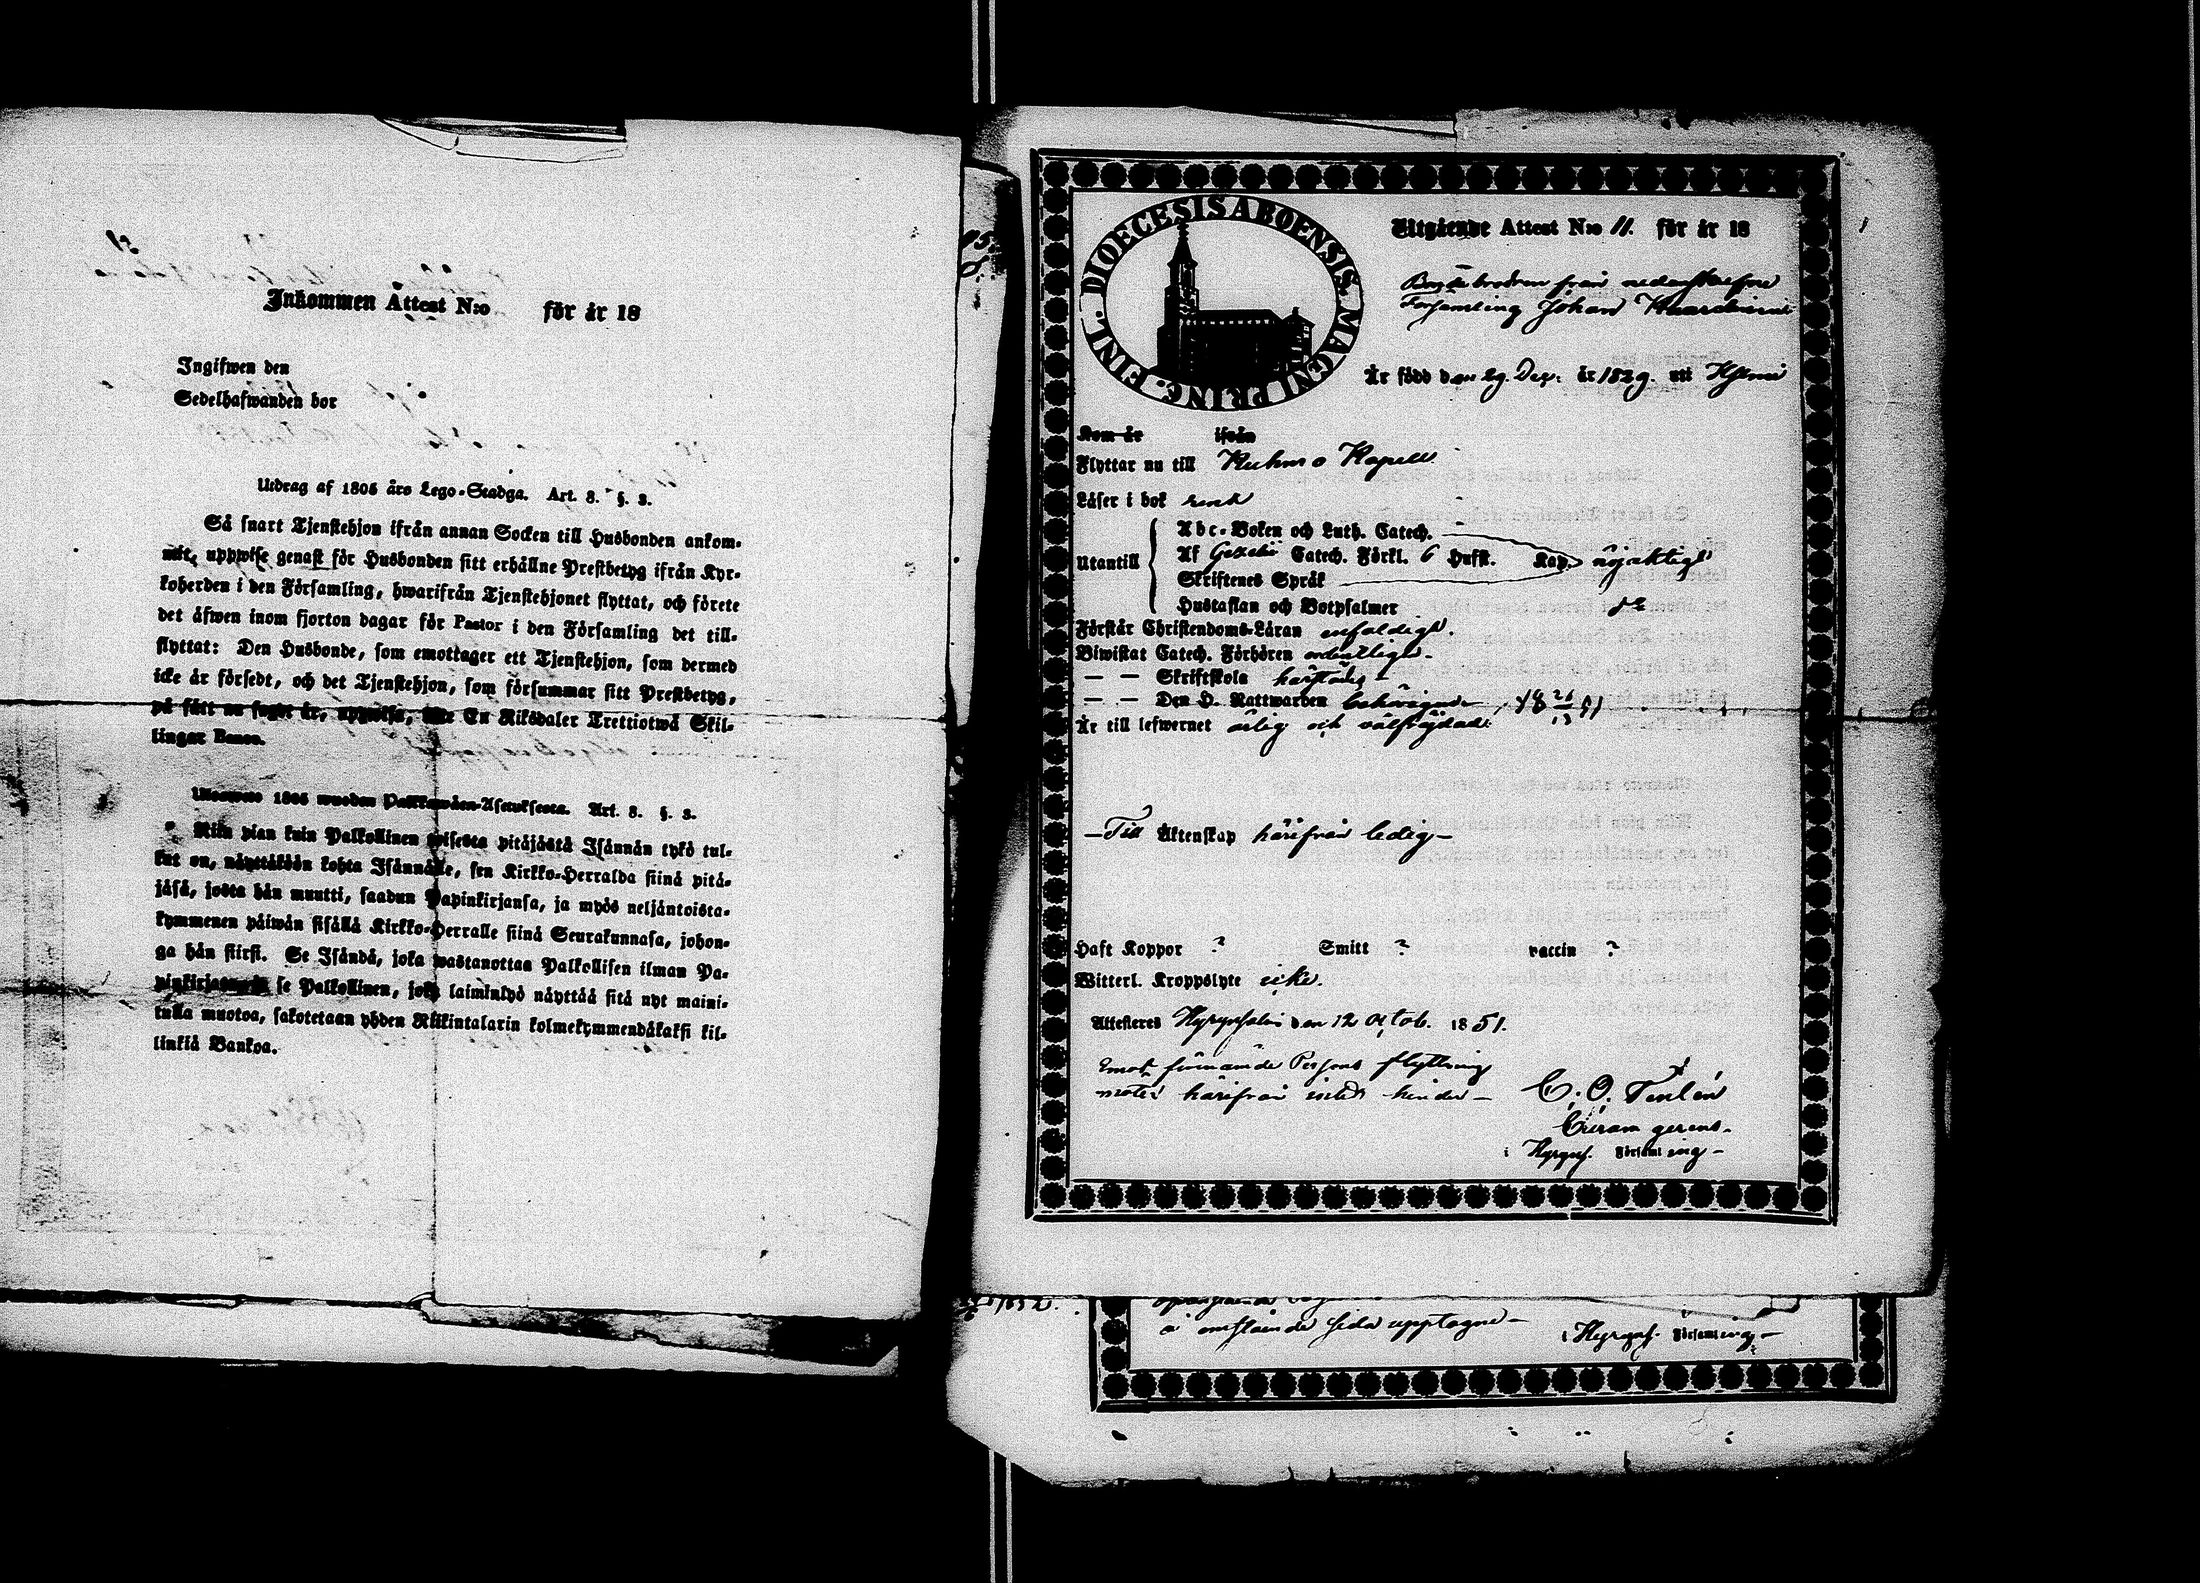 Inkommen Attest N:o för år 18
Ingifwen den
Sedelhafwanden bor
Utdrag af 1805 års Lego-Stadga. Art. 8. §. 3.
Så snart Tjenstehjon ifrån annan Socken till Husbonden ankom-
mit, uppwise genast för Husbonden sitt erhållne Prestbetyg ifrån Kyr-
koherden i den Församling, hwarifrån Tjenstehjonet flyttat, och förete
det åfwen inom fjorton dagar för Pastor i den Församling det till-
flyttat: Den Husbonde, som emottager ett Tjenstehjon, som dermed
icke år försedt, och det Tjenstehjon, som försummar sitt Prestbetyg,
på sått nu sagdt år, uppwisa, böte En Riksdaler Trettiotwå Skil-
lingar Banco.
Ulosweto 1805 wuoden Palkkawåen-Asetuksesta. Art. 8. §. 3.
Niin pian kuin Palkollinen toisesta pitåjåstå Isånnån tykö tul-
lut on, nåyttåköön kohta Isånnålle, sen Kirkko-Herralda siinå pitå-
jåså, josta hån muutti, saadun Papinkirjansa, ja myös neljåntoista-
kymmenen påiwån sisållå Kirkko-Herralle siinå Seurakunnasa, johon-
ga hån siirsi. Se Isåndå, joka wastanottaa Palkollisen ilman Pa-
pinkirjaa se Palkollinen, joka laiminlyö nåyttåå sitå nyt maini-
tulla muotoa, sakotetaan yhden Riikintalarin kolmekymmendåkaksi kil-
linkiå Bankoa.
DIOECESIS ABOENSIS. MAGNI PRINC. FINL.
Utgående Attest N:o 11. för år 18
från nedanskrefne
Församling Johan
År född den 29. Dez: år 1829. uti Hyrnsi
Kom år ifrån
Flyttar nu till Kuhmo Kapell
Låser i bok rent
Utantill
Abc-Boken och Luth. Catech.
Af Gezelii Catech. Förkl. 6 Hufst. Kap. nöjaktigt
Skriftenes Språk
Hustaflan och Botpsalmer do
Förstår Christendoms-Låran enfaldigt.
Biwistat Catech. Förhören ordentligen
— — Skriftskola härstädes
— — Den H. Nattwarden behörigen 18 51
År till lefwernet ärlig och välfrejdad.
Till Åktenskap härifrån ledig
Haft Koppor ? Smitt ? vaccin ?
Witterl. Kroppslyte icke.
Attesteras Hyrynsalmi den 12 Octob. 1851.
Emot förnämde Persons flyttning
möter härifrån intet hinder
C. O. Tenlén
Curam gerens.
i Hyryns. Församling
1852.
å omstående sida upptagne
i Hyryns. Församling